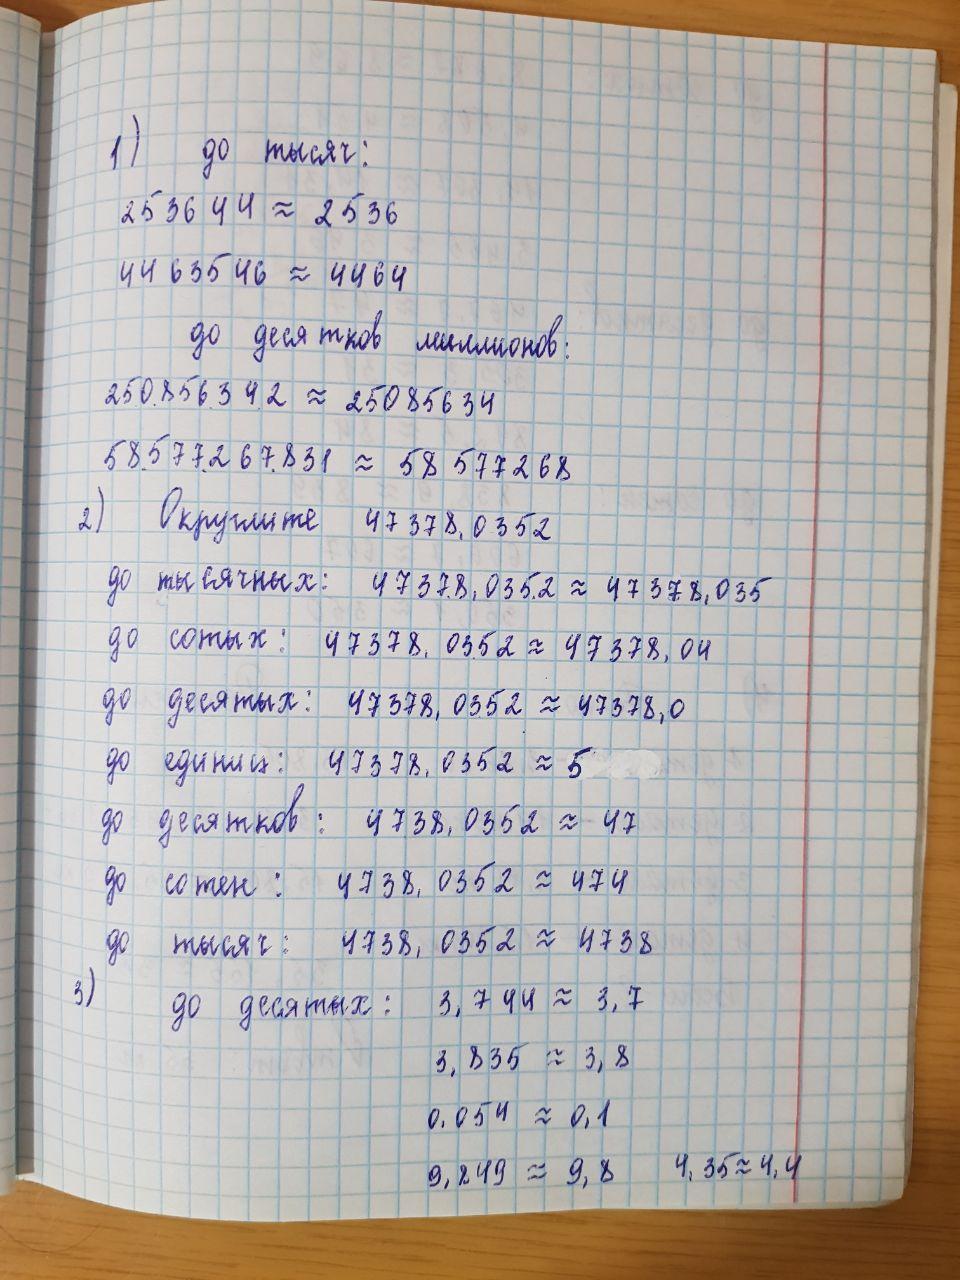 1) до тысяч:
253644 ≈ 2536
4463546 ≈ 4464
до десятков миллионов:
250.856.342 ≈ 25085634
58.577.267.831 ≈ 58577268
2) Округлите 47378,0352
до тысячных: 47378,0352 ≈ 47378,035
до сотых: 47378,0352 ≈ 47378,04
до десятых: 47378,0352 ≈ 47378,0
до единиц: 47378,0352 ≈ 5
до десятков: 4738,0352 ≈ 47
до сотен: 4738,0352 ≈ 474
до тысяч: 4738,0352 ≈ 4738
3) до десятых: 3,744 ≈ 3,7
3,835 ≈ 3,8
0.054 ≈ 0,1
9,849 ≈ 9,8 4,35 ≈ 4,4